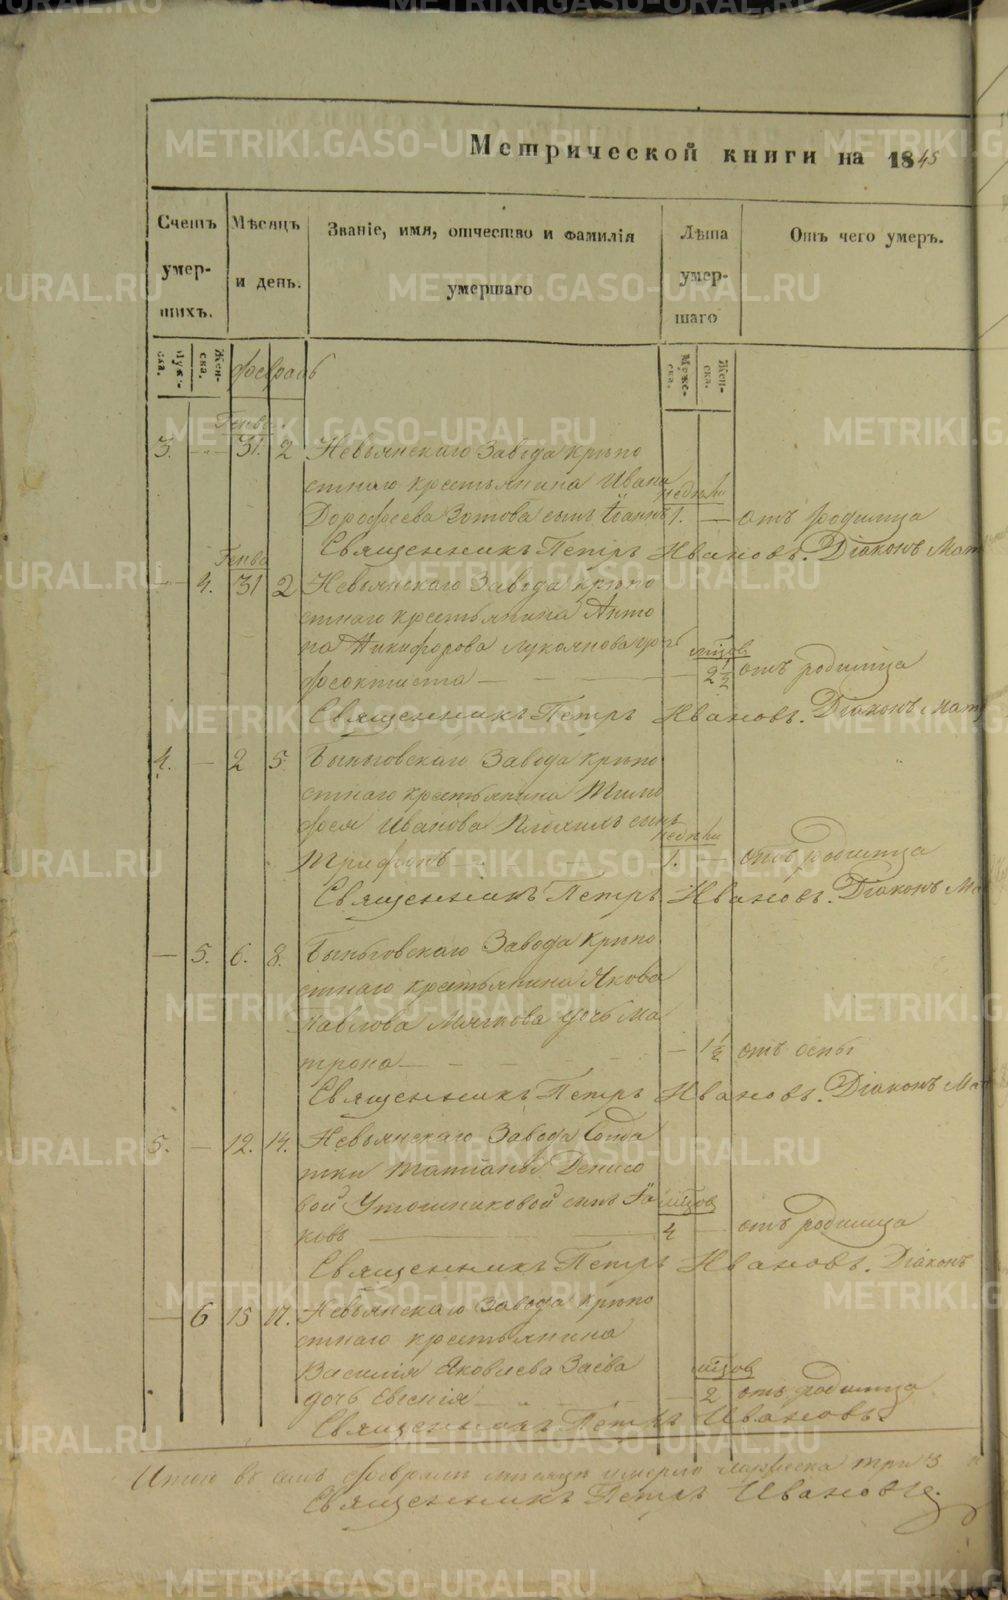 Метрической книги на 1845
Счетъ умер- шихъ.
Мѣсяцъ и день.
Званіе, имя, отчество и фамилія умершаго
Лѣта умер- шаго
Отъ чего умеръ.
Муже- ска.
Жен- ска.
Февраль
Муже- ска.
Жен- ска.
Генва
3. — 31. 2 Невьянскаго Завода крѣпо
стнаго крестьянина Ивана
недѣли
Дорофеева Зотова сынъ Іоаннъ 1. — отъ родимца
Священникъ Петръ Ивановъ. Діаконъ Мат
Генва
— 4. 31 2 Невьянскаго Завода крѣпо
стнаго крестьянина Анто
на Никифорова Лукоянова дочь
мѣсѣцов
Феоктиста — — — — 2 1/2 отъ родимца
Священникъ Петръ Ивановъ. Діаконъ Мат
4. — 2 5. Быньговскаго Завода крѣпо
стнаго крестьянина Тимо
фея Иванова сынъ
недѣли
Трифонъ — — 1. — отъ родимца
Священникъ Петръ Ивановъ. Діаконъ Ма
— 5. 6. 8. Быньговскаго Завода крѣпо
стнаго крестьянина Якова
Павлова Мягкова дочь Ма
трона — — — — 1 1/2 отъ оспы
Священникъ Петръ Ивановъ. Діаконъ Мат
5. — 12. 14. Невьянскаго Завода Солда
тки Татіаны Денисо
вой Утошниковой сынъ Іа
мѣсѣцов
ковъ — 4 — отъ родимца
Священникъ Петръ Ивановъ. Діаконъ
— 6 15 17. Невьянскаго Завода крѣпо
стнаго крестьянина
Василія Яковлева Заева
мѣсѣцов
дочь Евгенія — — 2 отъ родимца
Священникъ Петръ Ивановъ.
Итого въ семъ Февралѣ мѣсяцѣ умерло мужеска три 3
Священникъ Петръ Ивановъ.
METRIKI.GASO-URAL.RU